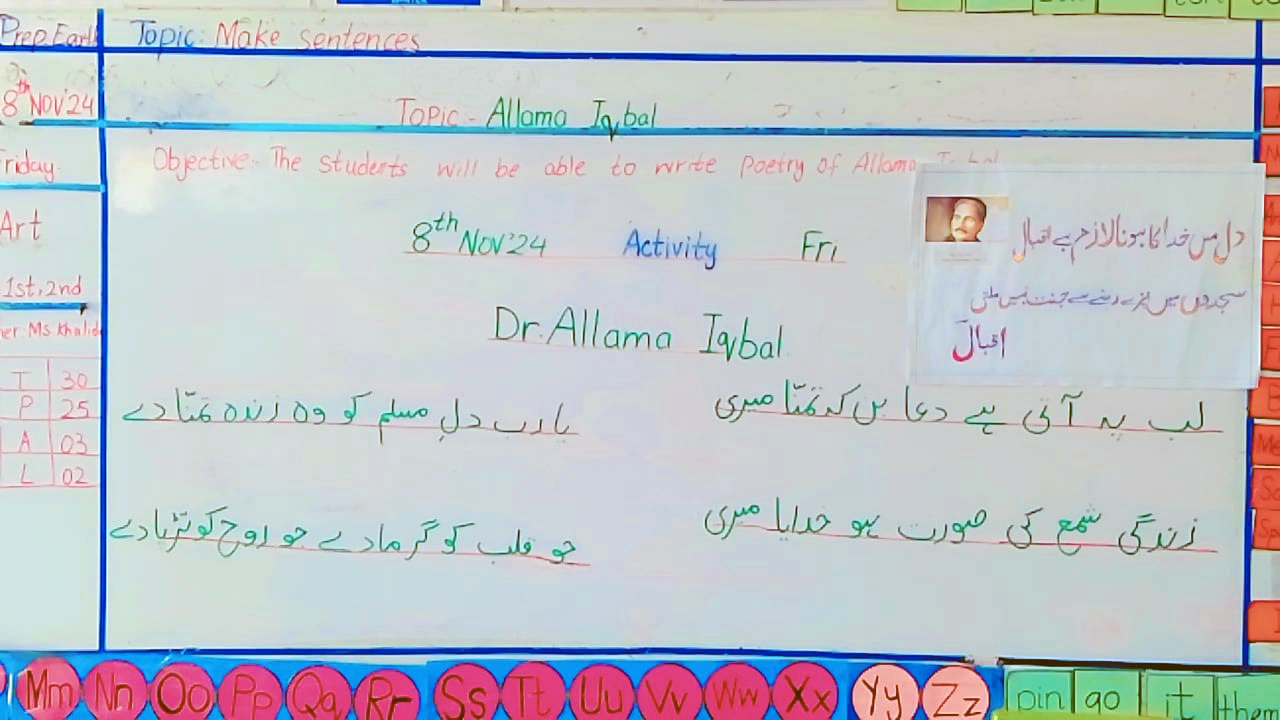 Prep.Earth
Topic: Make sentences
8th Nov'24
Topic - Allama Iqbal
Friday
Objective:- The students will be able to write Poetry of Allama Iqbal
Art
8th Nov'24 Activity Fri
1st, 2nd
Dr. Allama Iqbal
Ms. Khalid
T 30
P 25
A 03
L 02
دل میں خدا کا ہونا لازم ہے اقبال
سجدوں میں پڑے رہنے سے جنت نہیں ملتی
اقبال
لب پہ آتی ہے دعا بن کہ تمنّا میری
زندگی شمع کی صورت ہو خدایا میری
یارب دلِ مسلم کو وہ زندہ تمنّا دے
جو قلب کو گرمادے جو روح کو تڑپا دے
Mm Nn Oo Pp Qq Rr Ss Tt Uu Vv Ww Xx Yy Zz
go it them